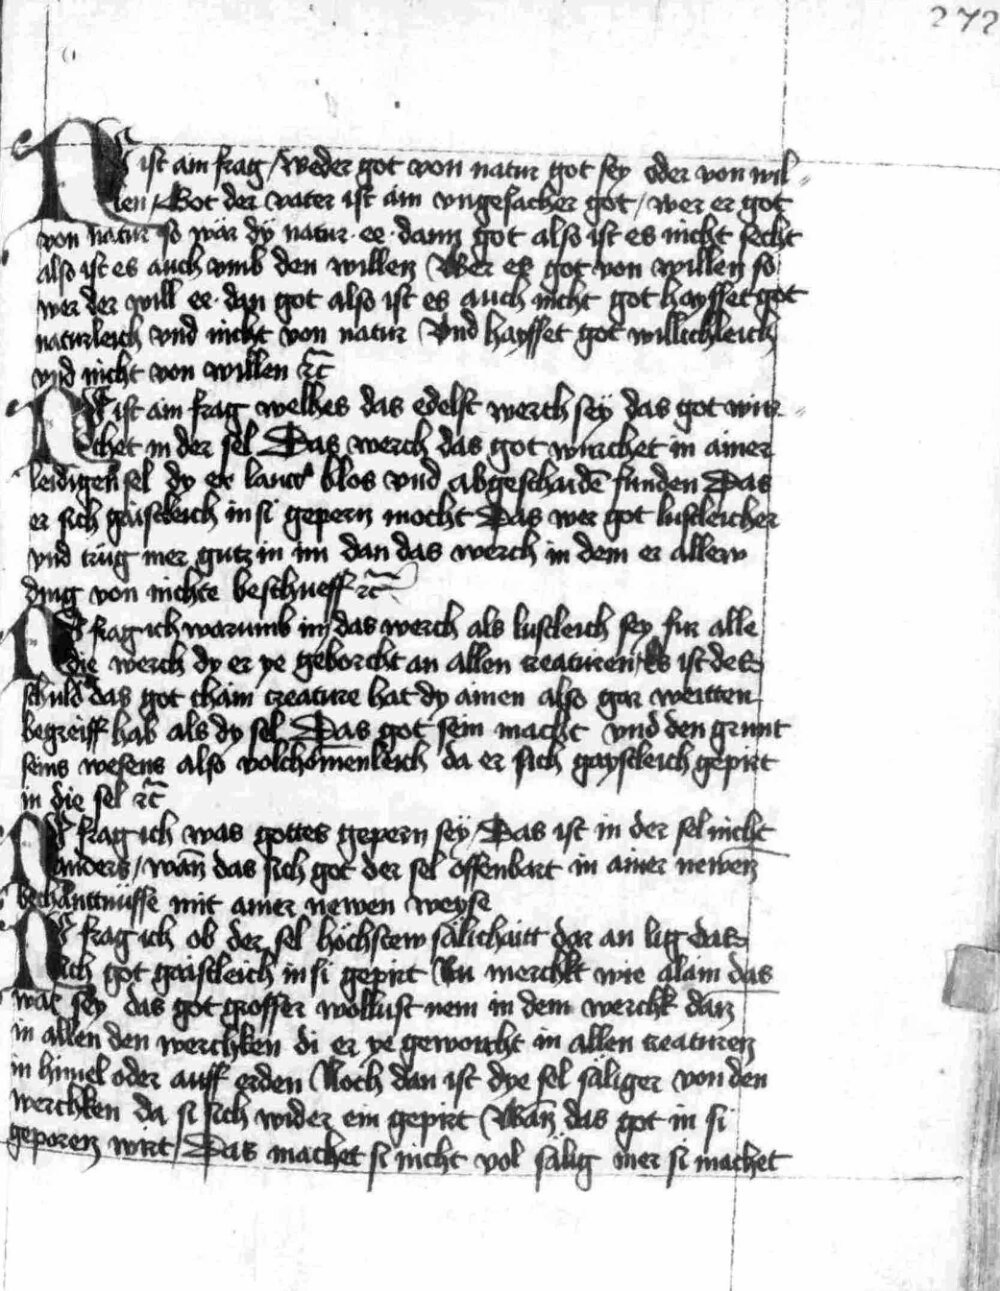 272
Es ist ain frag / weder got von natur got sey oder von wil-
len / Got der vater ist ain vngesacher got / wer er got
von natur so wär dÿ natur · ee · dann got also ist es nicht secht
also ist es auch vmb den willen Wer er got von willen so
wer der will ee · dan got also ist es auch nicht got haysset got
naturleich vnd nicht von natur Vnd haysset got willichleich
vnd nicht von willen ꝛc̃
Es ist ain frag welhes das edelst werch seÿ das got wur-
chet in der sel Das werch das got wurchet in ainer
leidigen sel dy er lautt blos vnd abgeschaidē funden Das
er sich gaistleich in si gepern mocht Das wer got lustleicher
vnd trüg mer gutz in im dan das werch in dem er allew
ding von nichte beschueff ꝛc̃
Nv frag ich warumb im das werch als lustleich sey fur alle
die werch dy er ye geborcht an allen creaturen / Es ist des
schuld das got chain creature hat dy ainen also gar weitten
begreiff hab als dy sel Das got sein macht vnd den grunt
seins wesens also volchōmenleich da er sich gaystleich gepirt
in die sel ꝛc̃
Nv frag ich was gottes gepern seÿ / Das ist in der sel nicht
anders / wan̄ das sich got der sel offenbart in ainer newen
bechanttnüsse mit ainer newen weyse
Nv frag ich ob der sel höchstew sälichaitt dar an lig das
sich got gaistleich in si gepirt Nu merchkt wie alain das
war sey das got grosser wollust nem in dem werchk dan
in allen den werchken di er ye geworcht in allen creaturen
in himel oder auff erden Noch dan ist dye sel säliger von den
werchken da si sich wider ein gepirt Wan̄ das got in si
geporen wirt / Das machet si nicht vol sälig mer si machet